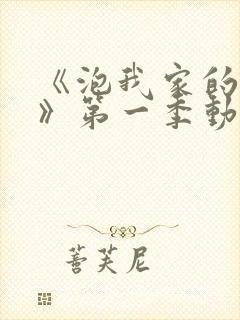 《泡我家的
》第一季動
蓍芙尼